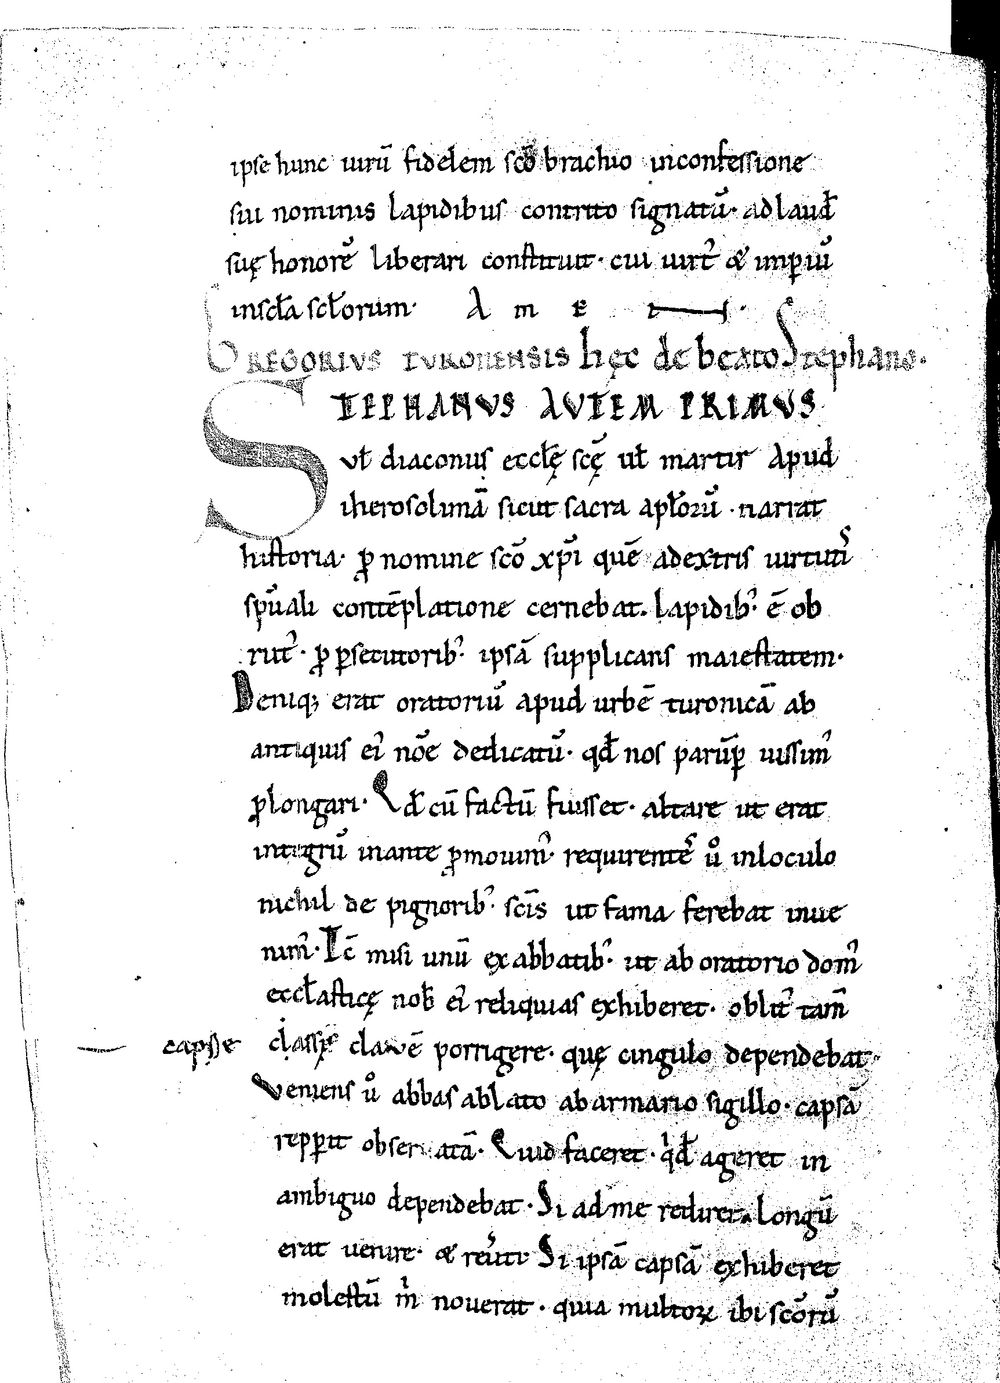 ipse hunc uirũ fidelem scõ brachio inconfessione
sui nominis lapidibus contrito signatũ· adlaud̃
suę honorẽ liberari constituit· cui uirt᾿ & imꝑiũ
inscła scłorum· A m e n·
GREGORIUS TURONENSIS hęc de beato Stephano·
STEPHANUS AUTEM PRIMUS
ut̃ diaconus eccłę scę̃ ut̃ martir apud
iherosolimã sicut sacra apłorũ · narrat
historia· ꝓ nomine scõ xp̃i quẽ adextris uirtuti᾿
spũali contẽplatione cernebat· lapidib᾿ ẽ ob
rut᾿· ꝓ ꝑsecutorib᾿ ipsã supplicans maiestatem·
Deniq; erat oratoriũ apud urbẽ turonicã ab
antiquis ei᾿ nõe dedicatũ· qd̃ nos parũꝑ iussim᾿
ꝓlongari· Qd̃ cũ factũ fuisset· altare ut erat
integrũ inante ꝓmouim᾿· requirentẽ᾿ uͦ inloculo
nichil de pignorib᾿ scĩs ut fama ferebat inue
nim᾿· Tc̃ misi unũ ex abbatib᾿ ut ab oratorio dom᾿
eccłasticę nob̃ ei᾿ reliquias exhiberet· oblit᾿ tam̃
capsę classis clauẽ porrigere· quę cingulo dependebat·
Veniens uͦ abbas ablato ab armario sigillo· capsã
repꝑit obseruatã· Quid faceret· qͥd̃ ageret in
ambiguo dependebat· Si ad me rediret· longũ
erat uenire· & reuͥti· Si ipsã capsã exhiberet
molestũ mͥ nouerat· quia multoꝝ ibi scõrũ